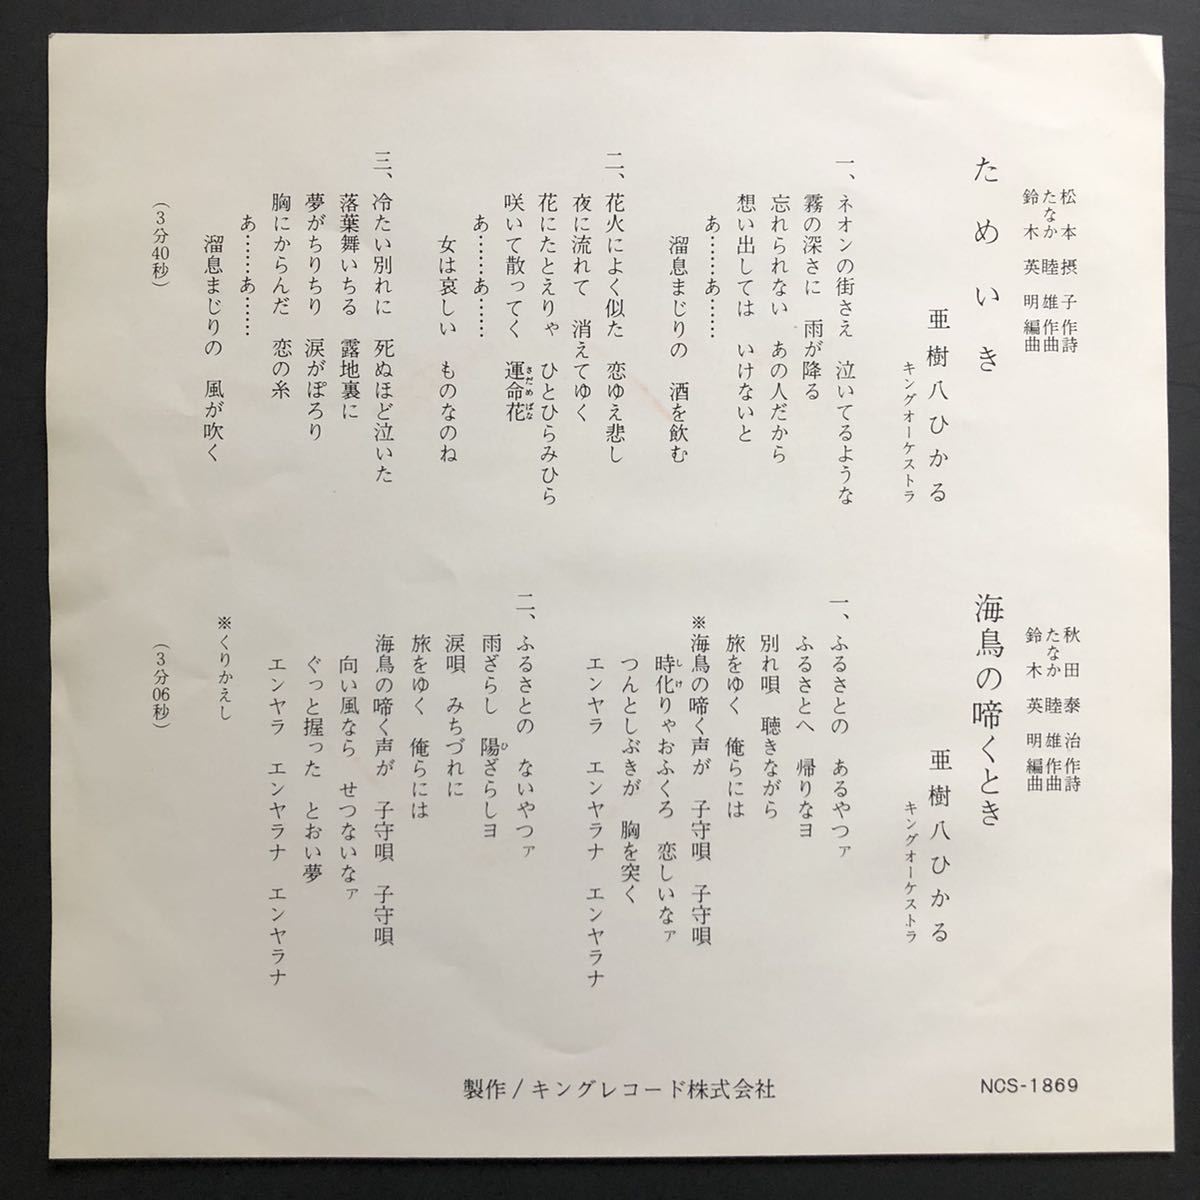 松本摂子作詩
たなか睦雄作曲
鈴木英明編曲
ためいき
亜樹八ひかる
キングオーケストラ
一、ネオンの街さえ 泣いてるような
霧の深さに 雨が降る
忘れられない あの人だから
想い出しては いけないと
あ………あ……
溜息まじりの 酒を飲む
二、花火によく似た 恋ゆえ悲し
夜に流れて 消えてゆく
花にたとえりゃ ひとひらみひら
咲いて散ってく 運命花
さだめ ばな
あ………あ……
女は哀しい ものなのね
三、冷たい別れに 死ぬほど泣いた
落葉舞いちる 露地裏に
夢がちりちり 涙がぽろり
胸にからんだ 恋の糸
あ………あ……
溜息まじりの 風が吹く
(3分40秒)
秋田泰治作詩
たなか睦雄作曲
鈴木英明編曲
海鳥の啼くとき
亜樹八ひかる
キングオーケストラ
一、ふるさとの あるやつァ
ふるさとへ 帰りなヨ
別れ唄 聴きながら
旅をゆく 俺らには
※海鳥の啼く声が 子守唄 子守唄
時化りゃおふくろ 恋しいなァ
しけ
つんとしぶきが 胸を突く
エンヤラ エンヤラナ エンヤラナ
二、ふるさとの ないやつァ
雨ざらし 陽ざらしヨ
ひ
涙唄 みちづれに
旅をゆく 俺らには
海鳥の啼く声が 子守唄 子守唄
向い風なら せつないなァ
ぐっと握った とおい夢
エンヤラ エンヤラナ エンヤラナ
※くりかえし
(3分06秒)
製作/キングレコード株式会社
NCS-1869